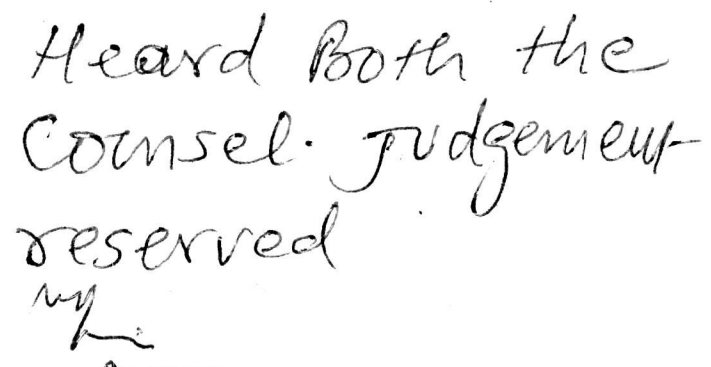 Heard Both the
Counsel. Judgement
reserved